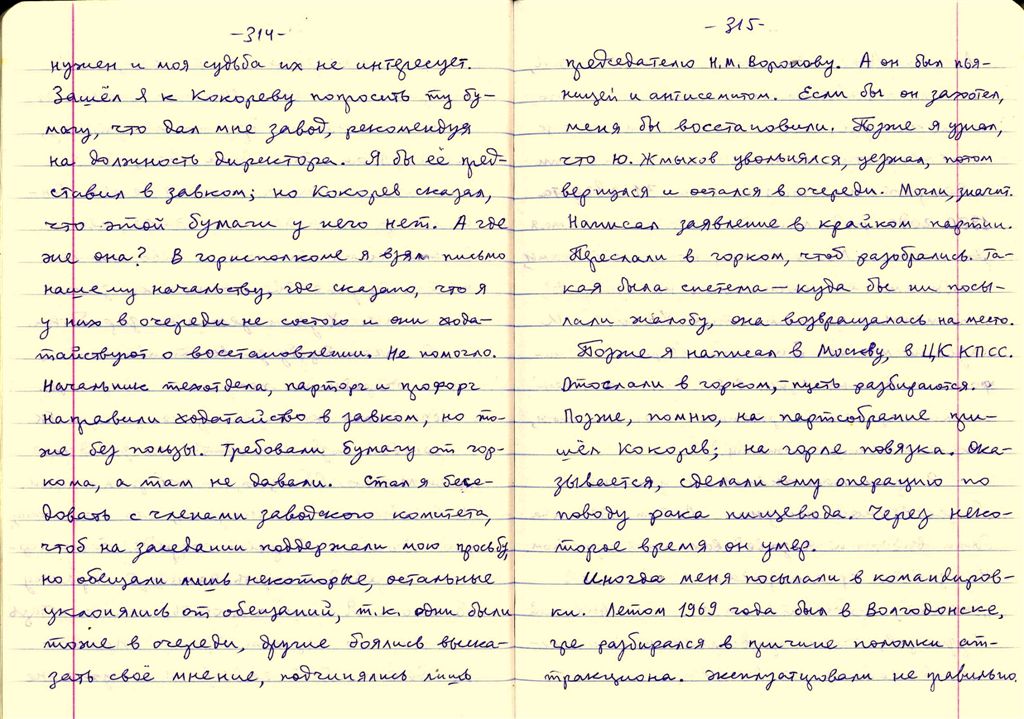 -314-
нужен и моя судьба их не интересует.
Зашёл я к Кокореву попросить ту бу-
магу, что дал мне завод, рекомендуя
на должность директора. Я бы её пред-
ставил в завком; но Кокорев сказал,
что этой бумаги у него нет. А где
же она? В горисполкоме я взял письмо
нашему начальству, где сказано, что я
у них в очереди не состою и они хода-
тайствуют о восстановлении. Не помогло.
Начальник техотдела, парторг и профорг
направили ходатайство в завком, но то-
же без пользы. Требовали бумагу от гор-
кома, а там не давали. Стал я бесе-
довать с членами заводского комитета,
чтоб на заседании поддержали мою просьбу,
но обещали лишь некоторые, остальные
уклонялись от обещаний, т.к. одни были
тоже в очереди, другие боялись выска-
зать своё мнение, подчинялись лишь
-315-
председателю Н.М. Воропову. А он был пья-
ницей и антисемитом. Если бы он захотел,
меня бы восстановили. Позже я узнал,
что Ю. Жмыхов увольнялся, уезжал, потом
вернулся и остался в очереди. Могли, значит.
Написал заявление в крайком партии.
Переслали в горком, чтоб разобрались. Та-
кая была система — куда бы ни посы-
лали жалобу, она возвращалась на место.
Позже я написал в Москву, в ЦК КПСС.
Отослали в горком, – пусть разбираются.
Позже, помню, на партсобрание при-
шёл Кокорев; на горле повязка. Ока-
зывается, сделали ему операцию по
поводу рака пищевода. Через неко-
торое время он умер.
Иногда меня посылали в командиров-
ки. Летом 1969 года был в Волгодонске,
где разбирался в причине поломки ат-
тракциона. Эксплуатировали не правильно.